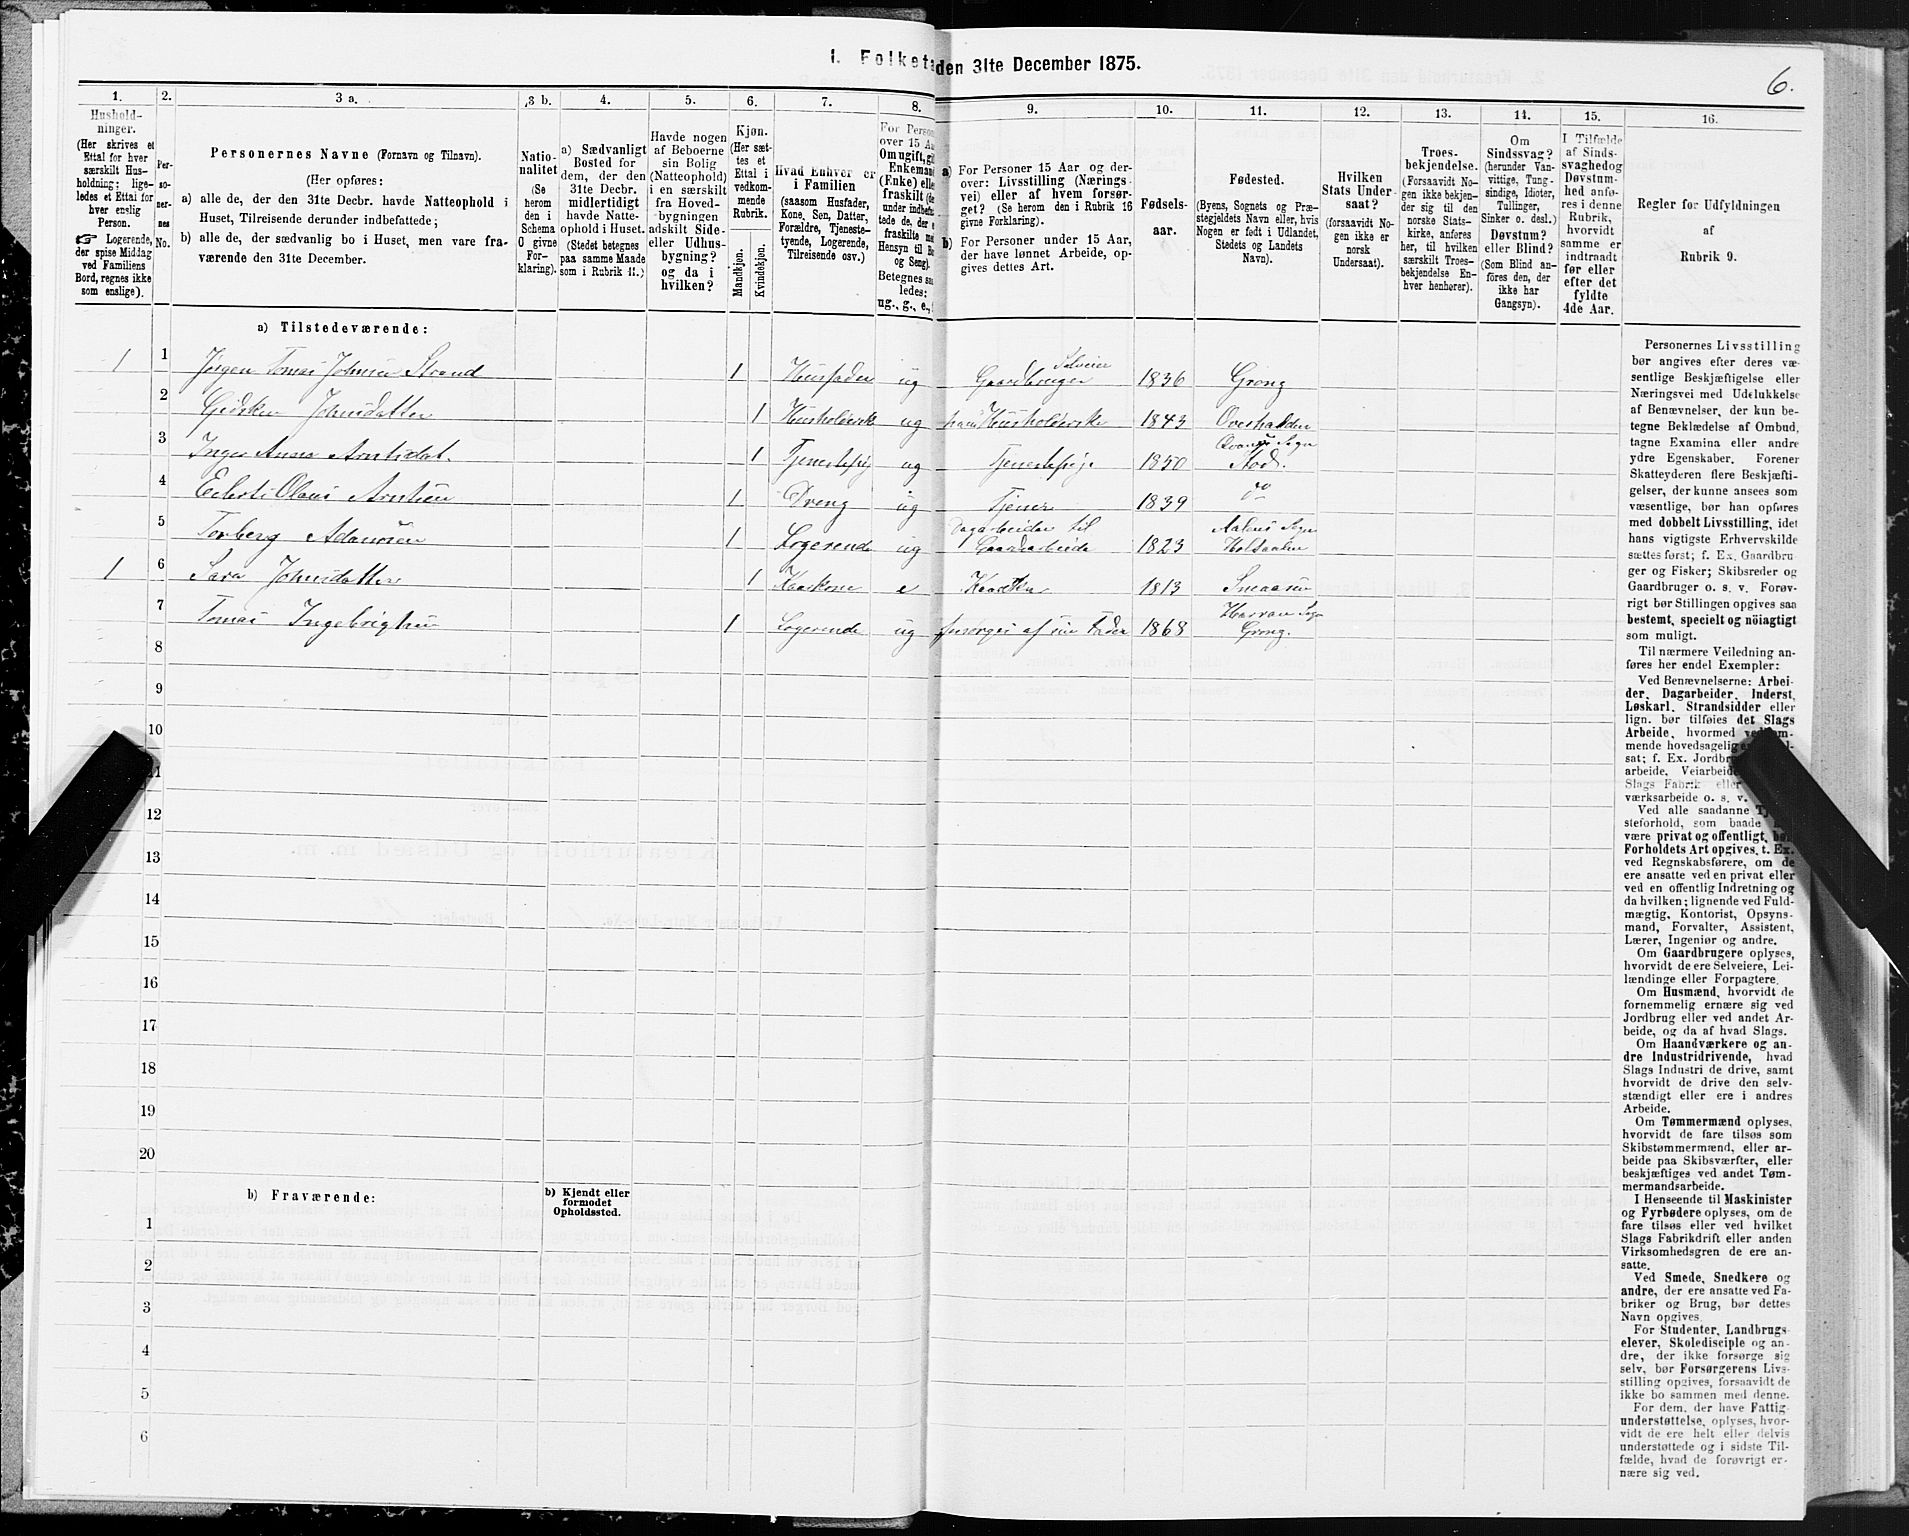 1. Folketæ
den 31te December 1875.
6.
1.
2.
3 a.
3 b.
4.
5.
6.
7.
8.
9.
10.
11.
12.
13.
14.
15.
16.
Hushold-
ninger.
(Her skrives et
Ettal for hver
særskilt Hus-
holdning; lige-
ledes et Ettal for
hver enslig
Person.
☞ Logerende,
der spise Middag
ved Familiens
Bord, regnes ikke
som enslige).
Per-
so-
ner-
nes
No.
Personernes Navne (Fornavn og Tilnavn).
(Her opføres:
a) alle de, der den 31te Decbr. havde Natteophold i
Huset, Tilreisende derunder indbefattede;
b) alle de, der sædvanlig bo i Huset, men vare fra-
værende den 31te December.
Natio-
nalitet
(Se
herom
den i
Schema
O givne
For-
klaring).
a) Sædvanligt
Bosted for
dem, der den
31te Decbr.
midlertidigt
havde Natte-
ophold i Huset.
(Stedet betegnes
paa samme Maade
som i Rubrik 11.)
Havde nogen
af Beboerne
sin Bolig
(Natteophold)
i en særskilt
fra Hoved-
bygningen
adskilt Side-
eller Udhus-
bygning?
og da i
hvilken?
Kjøn.
(Her sæt-
tes et
Ettal i
vedkom-
mende
Rubrik.
Mandkjøn.
Kvindekjøn.
Hvad Enhver er
i Familien
(saasom Husfader,
Kone, Søn, Datter,
Forældre, Tjeneste-
tyende, Logerende,
Tilreisende osv.)
For Person
over 15 Aa
Om ugift, gif
Enkemand
(Enke) elle
fraskilt (de
under indbefat
tede de, der e
fraskilte me
Hensyn til Bo
og Seng).
Betegnes saa
ledes:
ug., g., e.,
a) For Personer 15 Aar og der-
over: Livsstilling (Nærings-
vei) eller af hvem forsør-
get? (Se herom den i Rubrik 16
givne Forklaring).
b) For Personer under 15 Aar,
der have lønnet Arbeide, op-
gives dettes Art.
Fødsels-
aar.
Fødested.
(Byens, Sognets og Præ-
stegjeldets Navn eller, hvis
Nogen er født i Udlandet,
Stedets og Landets
Navn).
Hvilken
Stats Under-
saat?
(forsaavidt No-
gen ikke er
norsk
Undersaat).
Troes-
bekjendelse.
(Forsaavidt No-
gen ikke bekjen-
der sig til den
norske Stats-
kirke, anføres
her, til hvilken
særskilt Troes-
bekjendelse En-
hver henhører).
Om
Sindssvag?
(herunder Van-
vittige, Tung-
sindige, Idioter,
Tullinger,
Sinker o. desl.)
Døvstum?
eller Blind?
(Som Blind an-
föres den, der
ikke har
Gangsyn).
I Tilfælde
af Sinds-
svaghed og
Døvstum-
hed anfø-
res i denne
Rubrik,
hvorvidt
samme er
indtraadt
før eller
efter det
fyldte
4de Aar.
Regler for Udfyldningen
af
Rubrik 9.
a) Tilstedeværende:
1 1 Jørgen Tomas Johnsen Strand 1 Husfader ug Gaardbruger Selveier 1836 Grong
2 Gidsken Johnsdatter 1 Husholderske ug hans Husholderske 1843 Overhalden
3 Inger Anna Arntsdat. 1 Tjenestepige ug Tjenestepige 1850 Qvams Sogn Stod.
4 Eilert Olaus Arntsen 1 Dreng ug Tjener 1839 do
5 Torberg Adamsen 1 Logerende ug Dagarbeider til Gaardarbeide 1823 Aalens Sogn Holtaalen
1 6 Sara Johnsdatter 1 Kaarkone e Kaarkone 1813 Sneaasen
7 Tomas Ingebrigtsen 1 Logerende ug forsørges af sin Fader 1868 Harran Sogn Grong.
8
9
10
11
12
13
14
15
16
17
18
19
20
b) Fraværende:
b) Kjendt eller
formodet
Opholdssted.
1
2
3
4
5
6
Personernes Livsstilling
bør angives efter deres væ-
sentlige Beskjæftigelse eller
Næringsvei med Udelukkelse
af Benævnelser, der kun be-
tegne Beklædelse af Ombud,
tagne Examina eller andre
ydre Egenskaber. Forener
Skatteyderen flere Beskjæfti-
gelser, der kunne ansees som
væsentlige, bør han opføres
med dobbelt Livsstilling, idet
hans vigtigste Erhvervskilde
sættes først; f. Ex. Gaardbru-
ger og Fisker; Skibsreder og
Gaardbruger o. s. v. Forøv-
rigt bør Stillingen opgives saa
bestemt, specielt og nöiagtigt
som muligt.
Til nærmere Veiledning an-
føres her endel Exempler:
Ved Benævnelserne: Arbei-
der, Dagarbeider, Inderst,
Løskarl, Strandsidder eller
lign. bør tilføies det Slags
Arbeide, hvormed ved
mende hovedsagelig
sat; f. Ex. Jordbr
arbeide, Veiarbeide
Slags Fabrik eller
værksarbeide o. s. v.
Ved alle saadanne Tj
steforhold, som baade
være privat og offentligt, bør
Forholdets Art opgives, t. Ex.
ved Regnskabsførere, om de
ere ansatte ved en privat eller
ved en offentlig Indretning og
da hvilken; lignende ved Fuld-
mægtig, Kontorist, Opsyns-
mand, Forvalter, Assistent,
Lærer, Ingeniør og andre.
Om Gaardbrugere oplyses,
hvorvidt de ere Selveiere, Lei-
lændinge eller Forpagtere.
Om Husmænd, hvorvidt de
fornemmelig ernære sig ved
Jordbrug eller ved andet Ar-
beide, og da af hvad Slags.
Om Haandværkere og an-
dre Industridrivende, hvad
Slags Industri de drive, samt
hvorvidt de drive den selv-
stændigt eller ere i andres
Arbeide.
Om Tømmermænd oplyses,
hvorvidt de fare tilsøs som
Skibstømmermænd, eller ar-
beide paa Skibsværfter, eller
beskjæftiges ved andet Tøm-
mermandsarbeide.
I Henseende til Maskinister
og Fyrbødere oplyses, om de
fare tilsøs eller ved hvilket
Slags Fabrikdrift eller anden
Virksomhedsgren de ere an-
satte.
Ved Smede, Snedkere og
andre, der ere ansatte ved Fa-
briker og Brug, bør dettes
Navn opgives.
For Studenter, Landbrugs-
elever, Skoledisciple og an-
dre, der ikke forsørge sig
selv, bør Forsørgerens Livs-
stilling opgives, forsaavidt de
ikke bo sammen med denne.
For dem, der have Fattig-
understøttelse, oplyses, hvor-
vidt de ere helt eller delvis
understøttede og i sidste Til-
fælde, hvad de forøvrigt er-
nære sig ved.